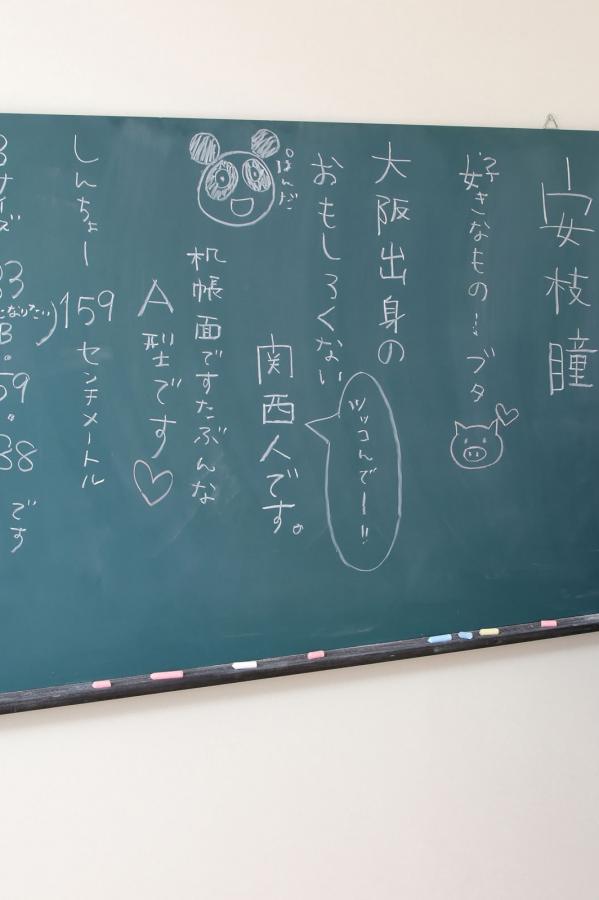 安枝瞳
好きなもの…ブタ
大阪出身の
おもしろくない
ツッコんでー!!
関西人です。
ぱんだ
机帳面ですたぶんな
A型です
しんちょー
159センチメートル
サイズ
83
になりたい)
B
59
88
です